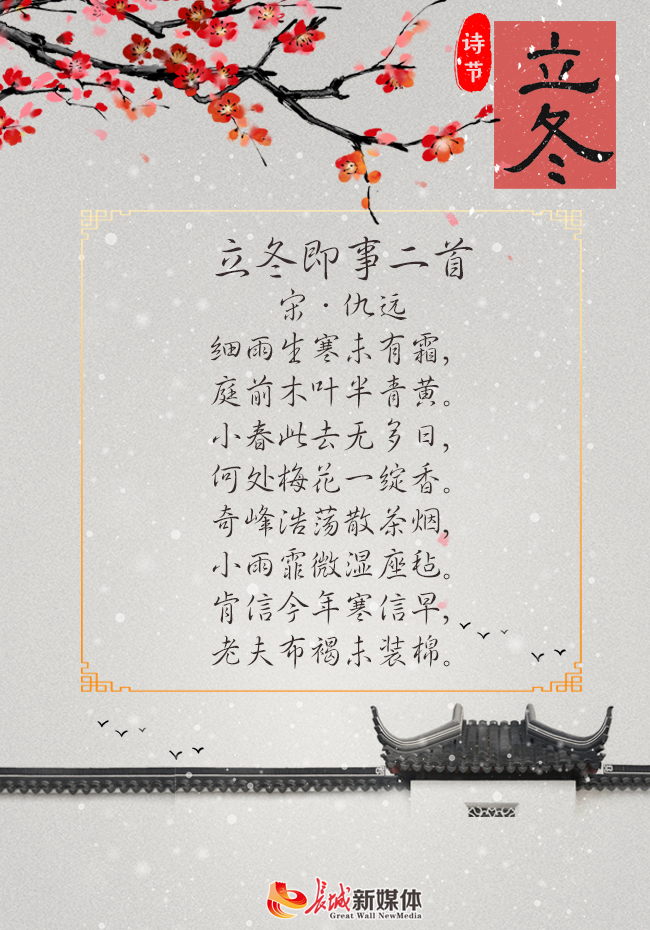 诗节
立冬
立冬即事二首
宋·仇远
细雨生寒未有霜，
庭前木叶半青黄。
小春此去无多日，
何处梅花一绽香。
奇峰浩荡散茶烟，
小雨霏微湿座毡。
肯信今年寒信早，
老夫布褐未装棉。
长城新媒体
Great Wall NewMedia